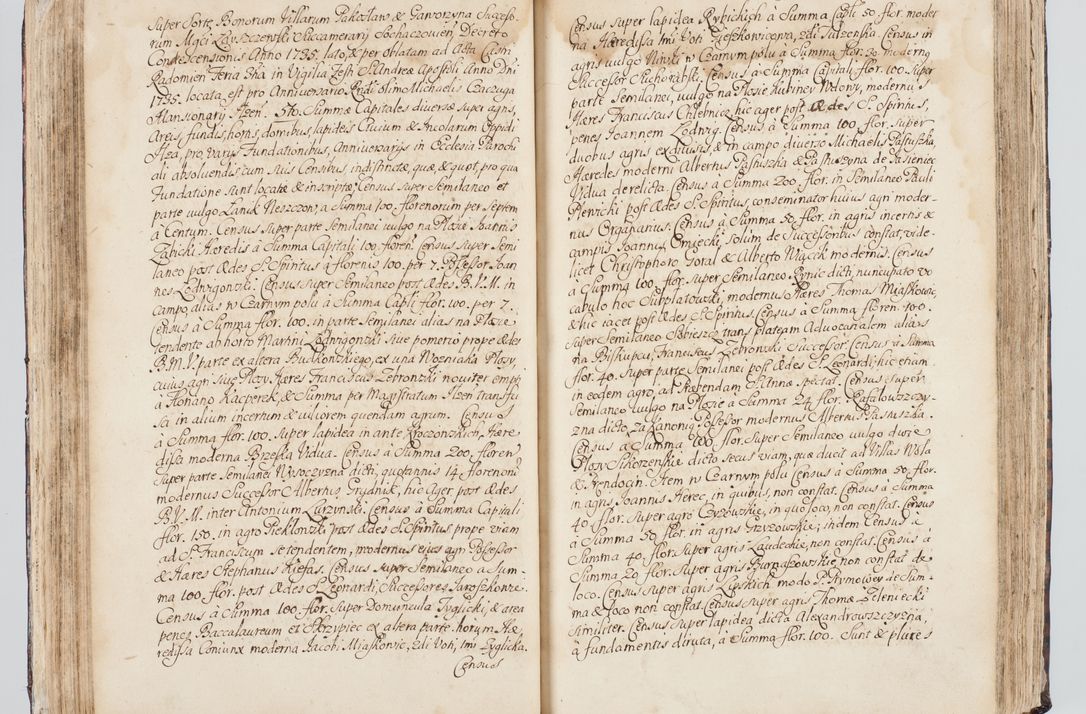 Super Sorte Bonorum Villarum Pakosław & Gaworzyna Succeſso-
rum Mgfci Załuszczewski Succamerary Sochaczovien, Decreto
Condescensionis Anno 1735. lato, & per oblatam ad Acta Castri
Radomien Feria 3tia in Vigilia Festi S. Andreæ Apostoli Anno Dni
1735. locata, est pro Anniversario Kndi olim Michaelis
Mansionary Ilzen. Ito Summæ Capitales diversæ super agris,
Areis, fundis, hortis, domibus, lapideis Civium & Incolarum Oppidi
Ilza, pro varys Fundationibus, Anniversarys in Ecclesia Parochi
ali absolvendis cum suis Censibus, indistinctè, quæ, & quot, pro qua
Fundatione sunt locatæ & inscriptæ. Census super Semilaneo et
parte vulgo Łanik Neszczow, à Summa 100. florenorum per Septem
à Centum. Census super parte Semilanei vulgo na Płosie Joannis
Żabicki Hæredis à Summa Capitali 100. floren. Census super Semi
laneo post Ædes S. Spiritus à florenis 100. per 7. Poſseſsor Joan
nes Lodwigowski. Census super Semilaneo post Ædes B. V. M. in
campo alias w Czarnym polu à Summa Captli flor. 100. per 7.
Census à Summa flor. 100. in parte Semilanei alias na Płosie
tendente ab horto Martini Lodwigowski sive pomerio prope ædes
B. M. V. parte ex altera, ex una Wozniaka Płosy,
cuius agri sive Płosy Hæres Franciscus Zebrowski noviter empt
à Floriano Kacperek, & Summa per Magistratum Ilzen transfu
sa in alium incertum & viliorem quendam agrum. Census
à Summa flor. 100. super lapidea in ante Kroczowskich, Hære
diſsa moderna Brzeska Vidua. Census à Summa 200. floren
super parte Semilanei Wysoczyzna dicti, quotannis 14. florenoru
modernus Succeſsor Albertus Grydnik, hic Ager post Ædes
B. V. M. inter Antonium Lurzynski. Census à Summa Capitali
flor. 150. in agro Piekłowski post Ædes S. Spiritus prope viam
ad S. Franciscum se tendentem, modernus ejus agri Poſseſsor
& Hæres Stephanus Kiefas. Census super Semilaneo à Sum-
ma 100. flor. post Ædes S. Leonardi, Succeſsores Jaroszkowie.
Census à Summa 100. flor. super Domuncula Zyglicki, & area
penes Baccalaureum et Skrzypiec ex altera parte, horum Hæ
rediſsa Coniunx moderna Jacobi Miąskowic, 2di Voti, 1mi Zyglicka.
Census
Census super lapidea Rybickich à Summa Captli 50. flor. moder
na Hærediſsa 1mi Voti, 2di Sulzonka. Census in
agris vulgo Niwki w Czarnym polu à Summa flor. 20. modernq
Succeſsor Suchorabski. Census à Summa Capitali flor. 100. super
parte Semilanei, vulgo na Płosie Kubinej Wdowy, modernus
Hæres Franciscus Chlebnic, hic ager post Ædes S. Spiritus,
penes Joannem Lodwig. Census à Summa 100. flor. super
duobus agris ex divisis, & in campo diverso Michaelis Pastuszka,
Hæredes moderni Albertus Pastuszka & Pastuszyna de Jasieniec
Vidua derelicta. Census à Summa 200. flor. in Semilaneo Pauli
Piewicki post Ædes S. Spiritus, conseminator huius agri moder-
nus Organarius. Census à Summa 50. flor. in agris incertis &
campis Joannis Omiecki, solum de Succeſsoribus constat, vide-
licet Christophoro Goral & Alberto Mącik modernis. Census
à Summa 100. flor. super Semilaneo Rynic dicti, nuncupato vo
cabulo hoc Surplatowski, modernus Hæres Thomas Miąskowic,
& hic iacet post Ædes S. Spiritus. Census à Summa floren. 100.
super Semilaneo Sobieszcz trans plateam Advocatialem alias
na Biskupcu, Franciscus Zebrowski Succeſsor. Census à Summa
flor. 40. super parte Semilanei post Ædes S. Leonardi, hic etiam
in eodem agro, ad Præbendam S. Annæ spectat. Census super
Semilaneo vulgo na Płosie à Summa 24. flor. Rafałowszczy
zna dicto, za Kanonią, Poſseſsor modernus Alberti Pastuszka.
Census à Summa 100. flor. super Semilaneo vulgo dwie
Płosy Sikorzenskie dicto secus viam, quæ ducit ad Villas Wola
& Trendocin. Item w Czarnym polu Census à Summa 50. flor.
in agris Joannis Herec, in quibus, non constat. Census à Summa
40. flor. super agro Grzowskie, in quo loco, non constat. Census
à Summa 50. flor. in agris Grzezowskie; itidem Census à
Summa 40. flor. super agris Laudeckie, non constat. Census à
Summa 20. flor. super agris Burnaszowskie, non constat de
loco. Census super agris Lipskich modo P. Rymowicz de Sum-
ma & loco non constat. Census super agris Thomæ Zeleniecki
similiter. Census super lapidea dicta Alexandrowszczyzna,
à fundamentis diruta, à Summa flor. 100. Sunt & plures